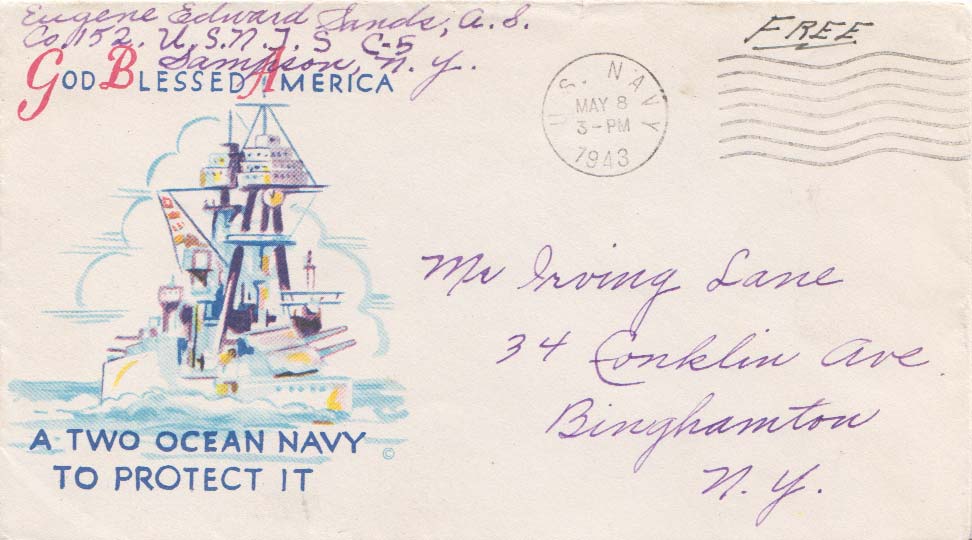 Eugene Edward Sands, A.S.
Co. 152. U.S.N.T.S C-5
Sampson, N.Y.
FREE
GOD BLESSED AMERICA
U.S. NAVY
MAY 8
3-PM
1943
Mr Irving Lane
34 Conklin Ave.
Binghamton
N.Y.
A TWO OCEAN NAVY
TO PROTECT IT
©